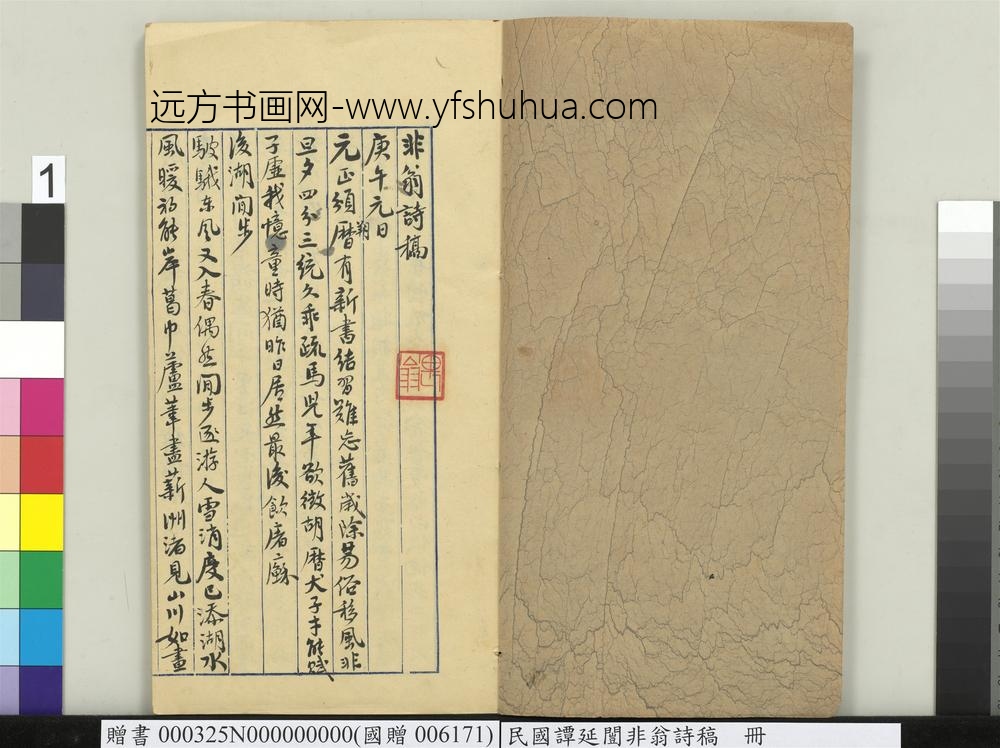 远方书画网-www.yfshuhua.com
非翁詩稿
庚午元日
元正頒朔曆有新書結習難忘舊歲除易俗移風非
旦夕四分三統久乖疏馬兒年欲徵胡曆犬子才能賦
子虛我憶童時猶昨日居然最後飲屠蘇
後湖閒步
駘蕩東風又入春偶然閒步逐游人雪消度已添湖水
風暖初能岸葛巾蘆葦盡薪洲渚見山川如畫
1
贈書 000325N000000000(國贈 006171)
民國譚延闓非翁詩稿 冊